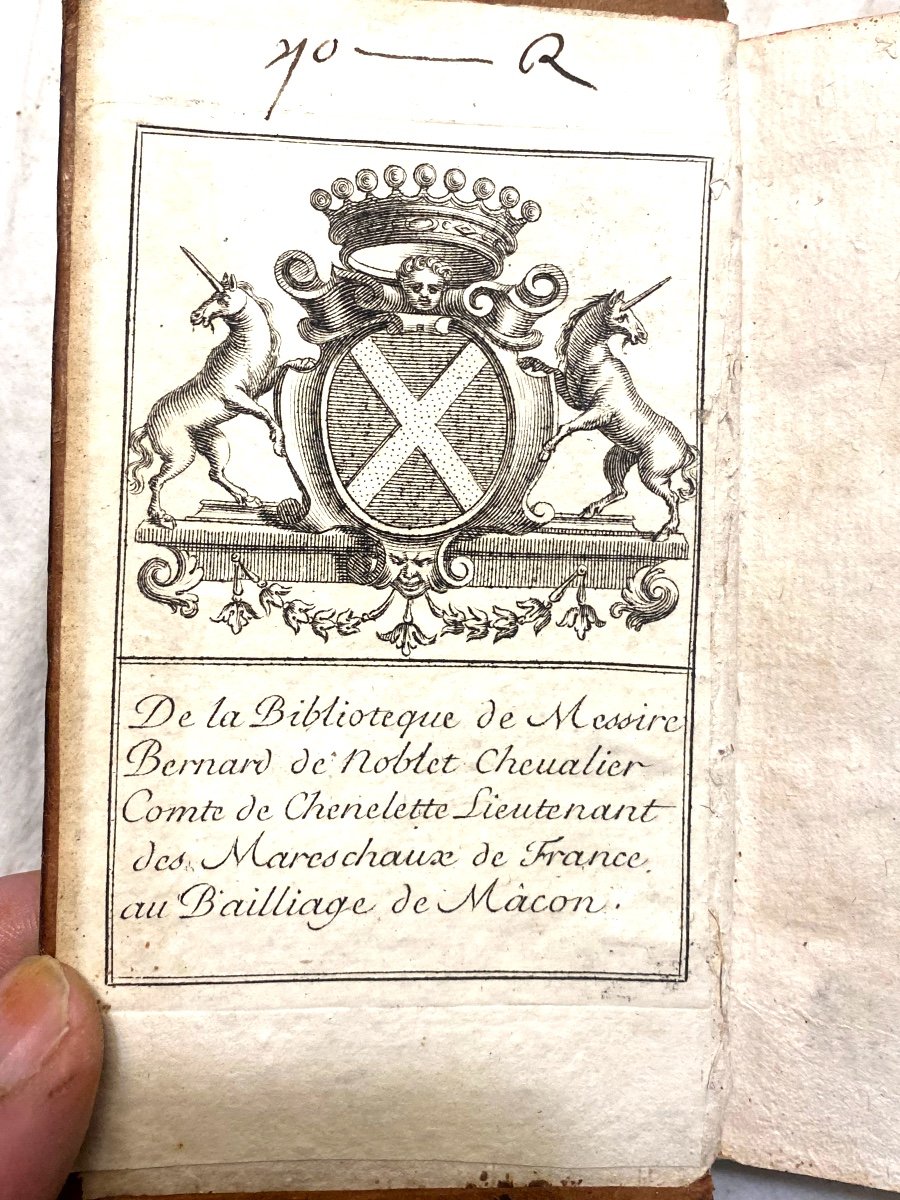 70 — R
De la Biblioteque de Messire
Bernard de Noblet Cheualier
Comte de Chenelette Lieutenant
des Mareschaux de France
au Bailliage de Mâcon.